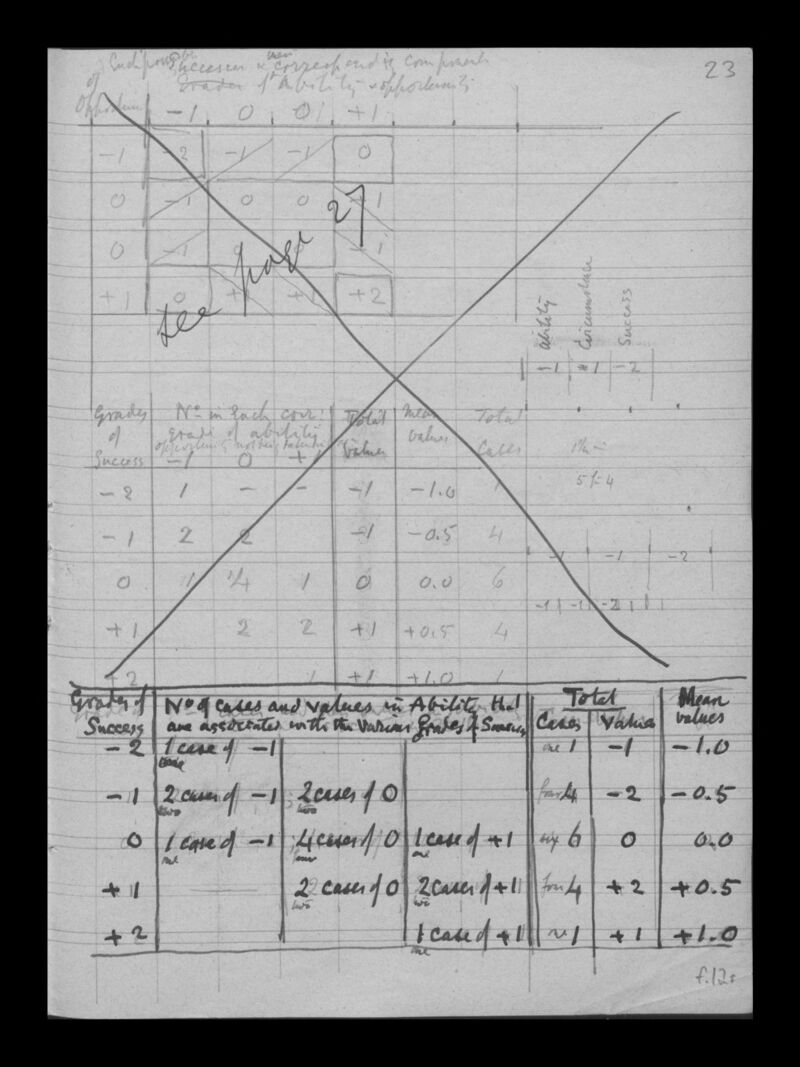 23
Success corresponding components
of Grades of Ability & opportunity
-1 0 0 +1
-1 -2 -1 -1 0
0 -1 0 0 +1
0 -1 0
+1 0 +1 +1 +2
See page 27
Ability Circumstance Success
-1 -2
Grades of Success
No in Each
grade of ability
-1 0 +1
Total Values
Mean values
Total Cases
-2 1 - - -1 -1.0 1
5
-1 2 2 -1 -0.5 4
-1 -1 -2
0 1 4 1 0 0.0 6
-1 -1 -2
+1 2 2 +1 +0.5 4
+2 1 +1 +1.0 1
Grades of Success
No of cases and values in Ability that
are associated with the various Grades of Success
Total
Cases Values
Mean values
-2 1 case of -1 one 1 -1 -1.0
-1 2 cases of -1 2 cases of 0 four 4 -2 -0.5
two two
0 1 case of -1 4 cases of 0 1 case of +1 six 6 0 0.0
one four one
+1 2 cases of 0 2 cases of +1 four 4 +2 +0.5
two two
+2 1 case of +1 one 1 +1 +1.0
one